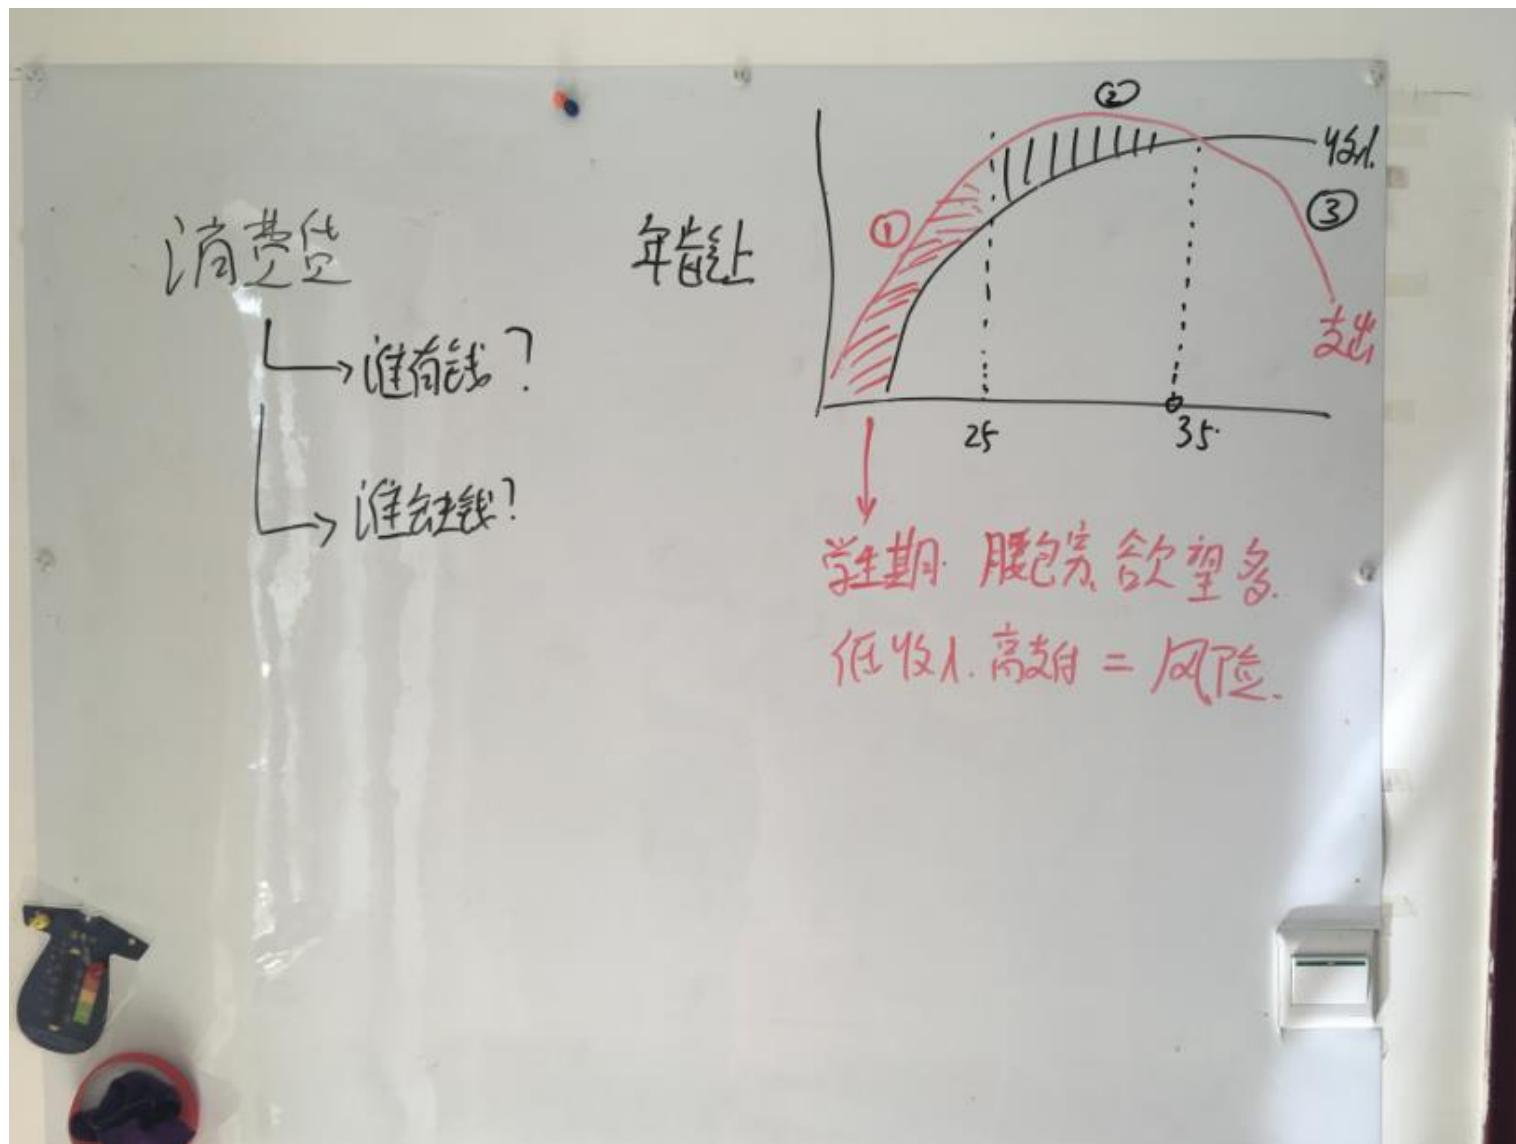 消费贷
谁有钱?
谁缺钱?
年龄上
①
②
③
收入
支出
25
35
学生期 腰包穷、欲望多.
低收入.高支付 = 风险.